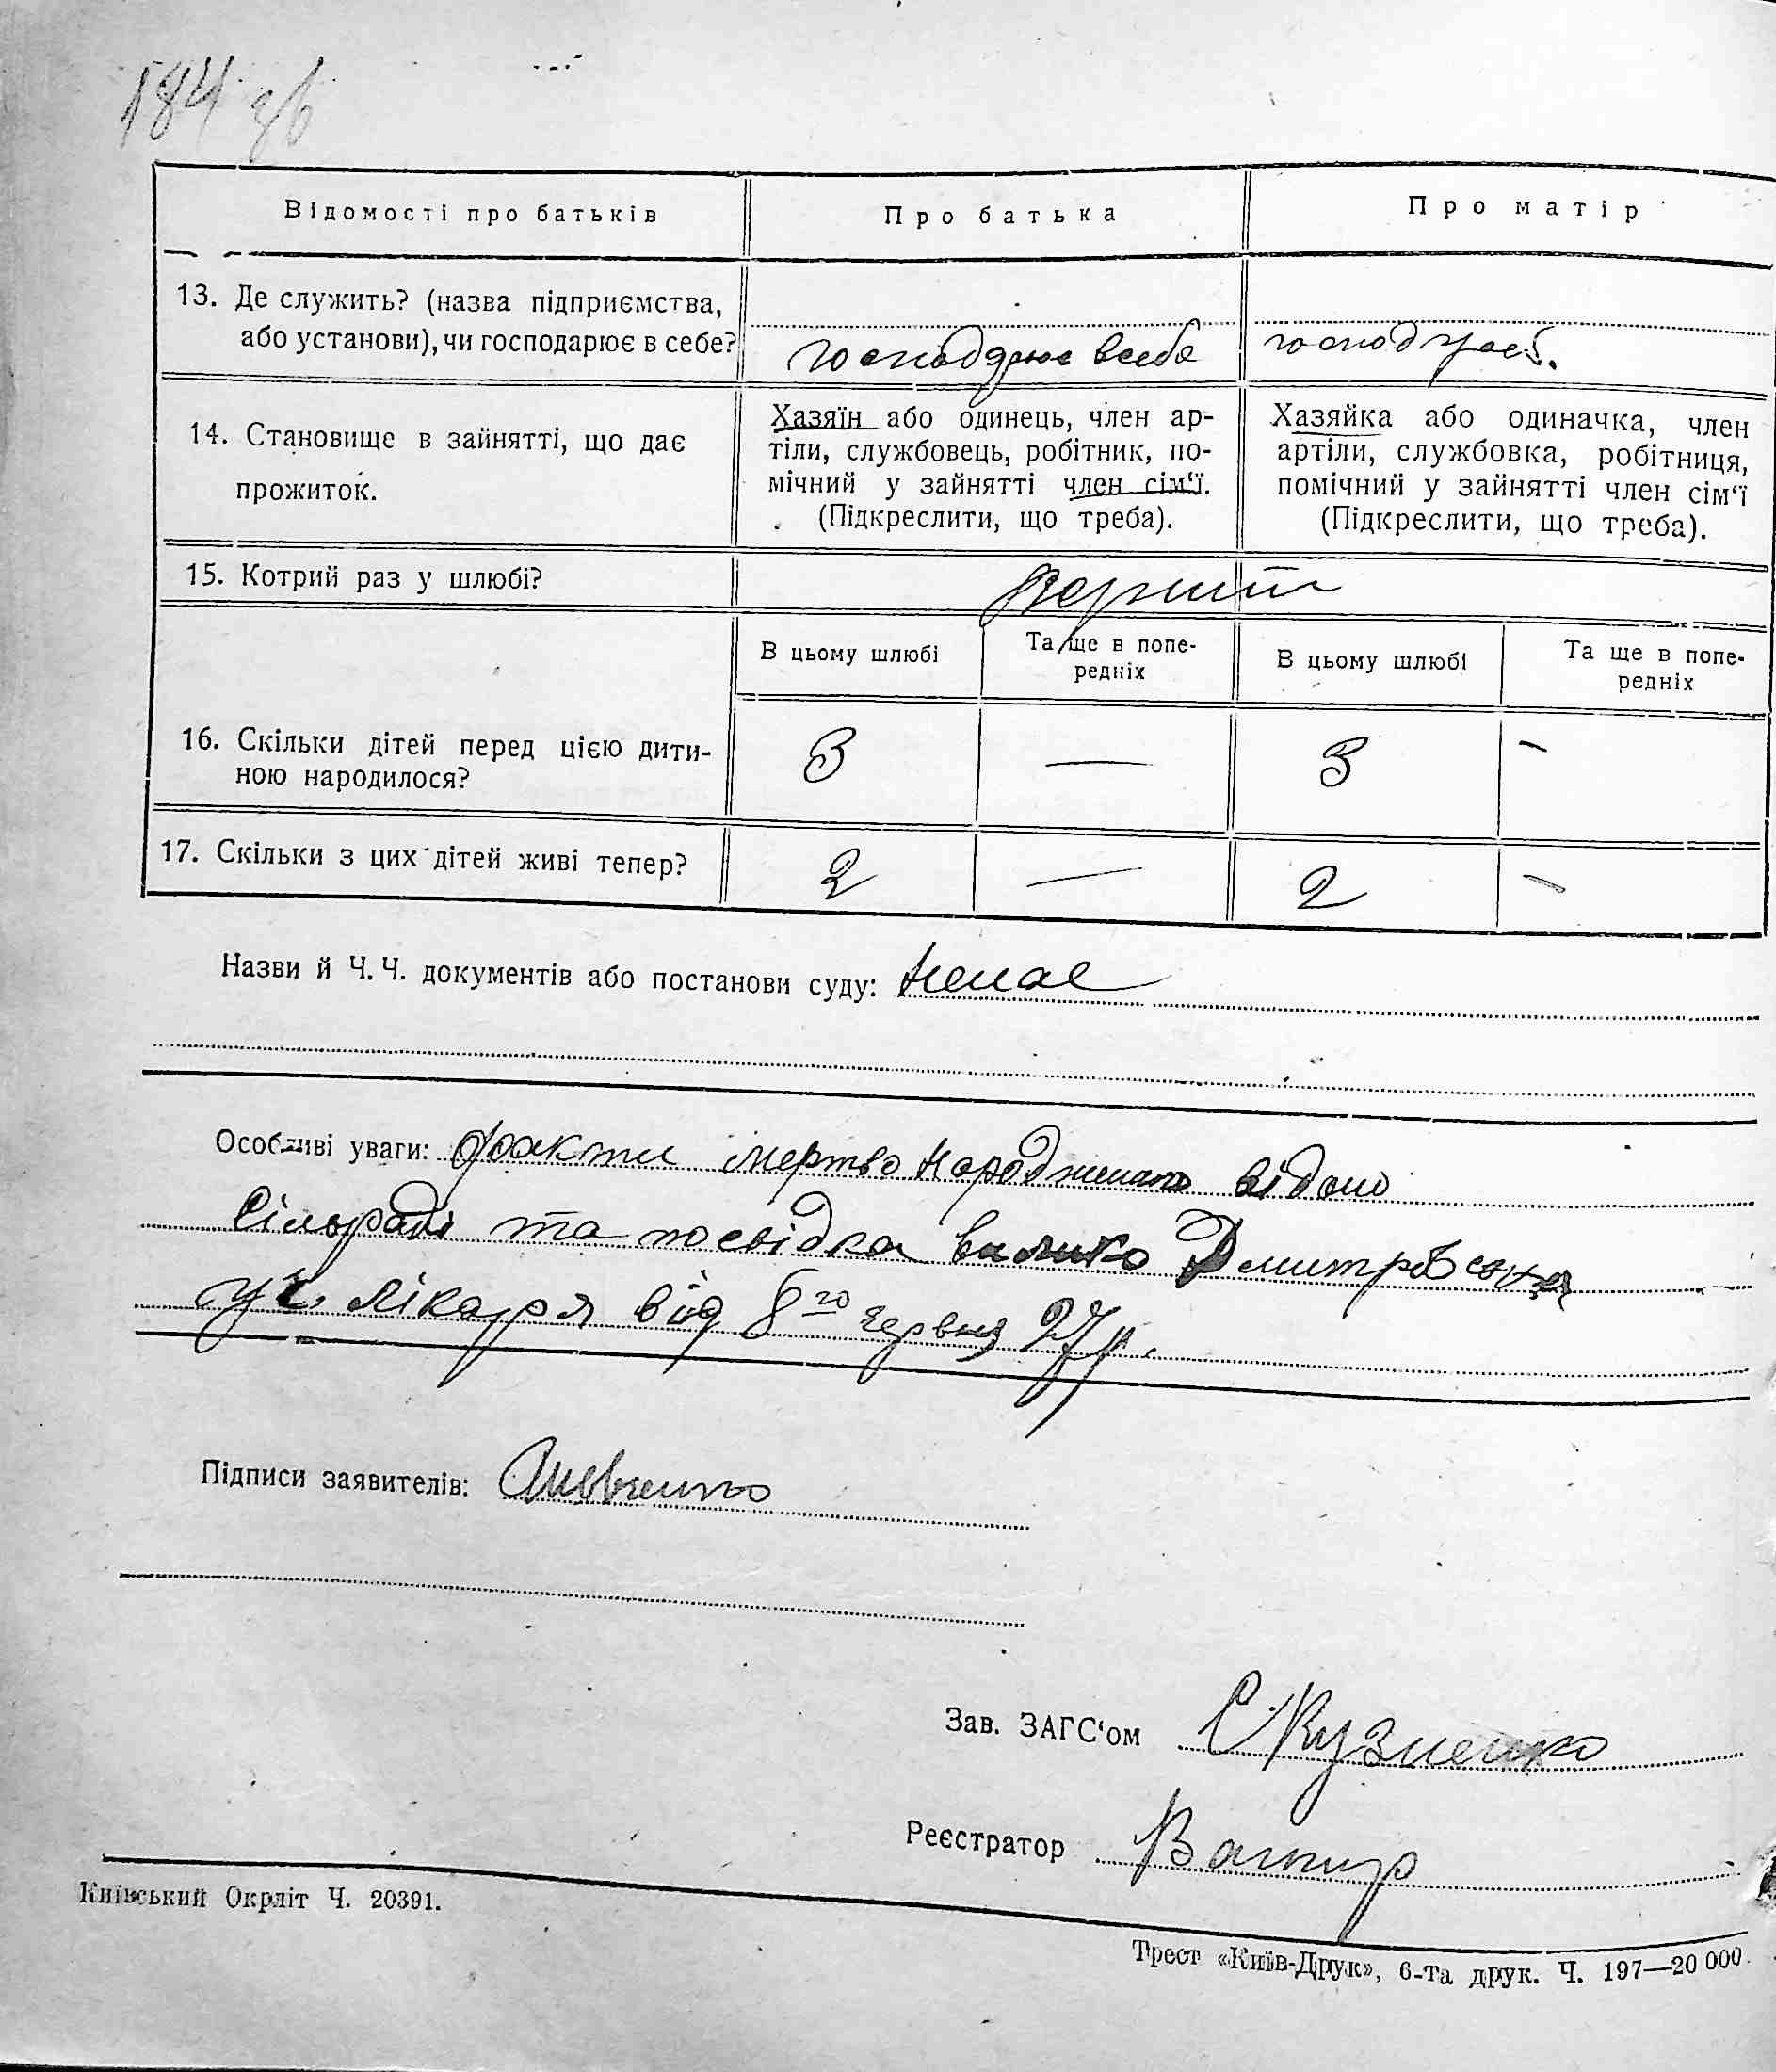 184 зв
Відомості про батьків
Про батька
Про матір
13. Де служить? (назва підприємства,
або установи), чи господарює в себе?
господарює в себе
господ у себ.
14. Становище в зайнятті, що дає
прожиток.
Хазяїн або одинець, член ар-
тіли, службовець, робітник, по-
мічний у зайнятті член сім‘ї.
(Підкреслити, що треба).
Хазяйка або одиначка, член
артіли, службовка, робітниця,
помічний у зайнятті член сім‘ї
(Підкреслити, що треба).
15. Котрий раз у шлюбі?
перший
В цьому шлюбі
Та ще в попе-
редніх
В цьому шлюбі
Та ще в попе-
редніх
16. Скільки дітей перед цією дити-
ною народилося?
3 — 3 -
17. Скільки з цих дітей живі тепер?
2 — 2 -
Назви й Ч. Ч. документів або постанови суду: немае
Особливі уваги: факти мертво народженого відомо
Сільраді та посвідка Дмитрівська
уч. лікаря від 8го червня 27 р.
Підписи заявителів: Шевченко
Зав. ЗАГС‘ом С Кузненко
Реєстратор
Київський Окрліт Ч. 20391.
Трест «Київ-Друк», 6-та друк. Ч. 197—20 000